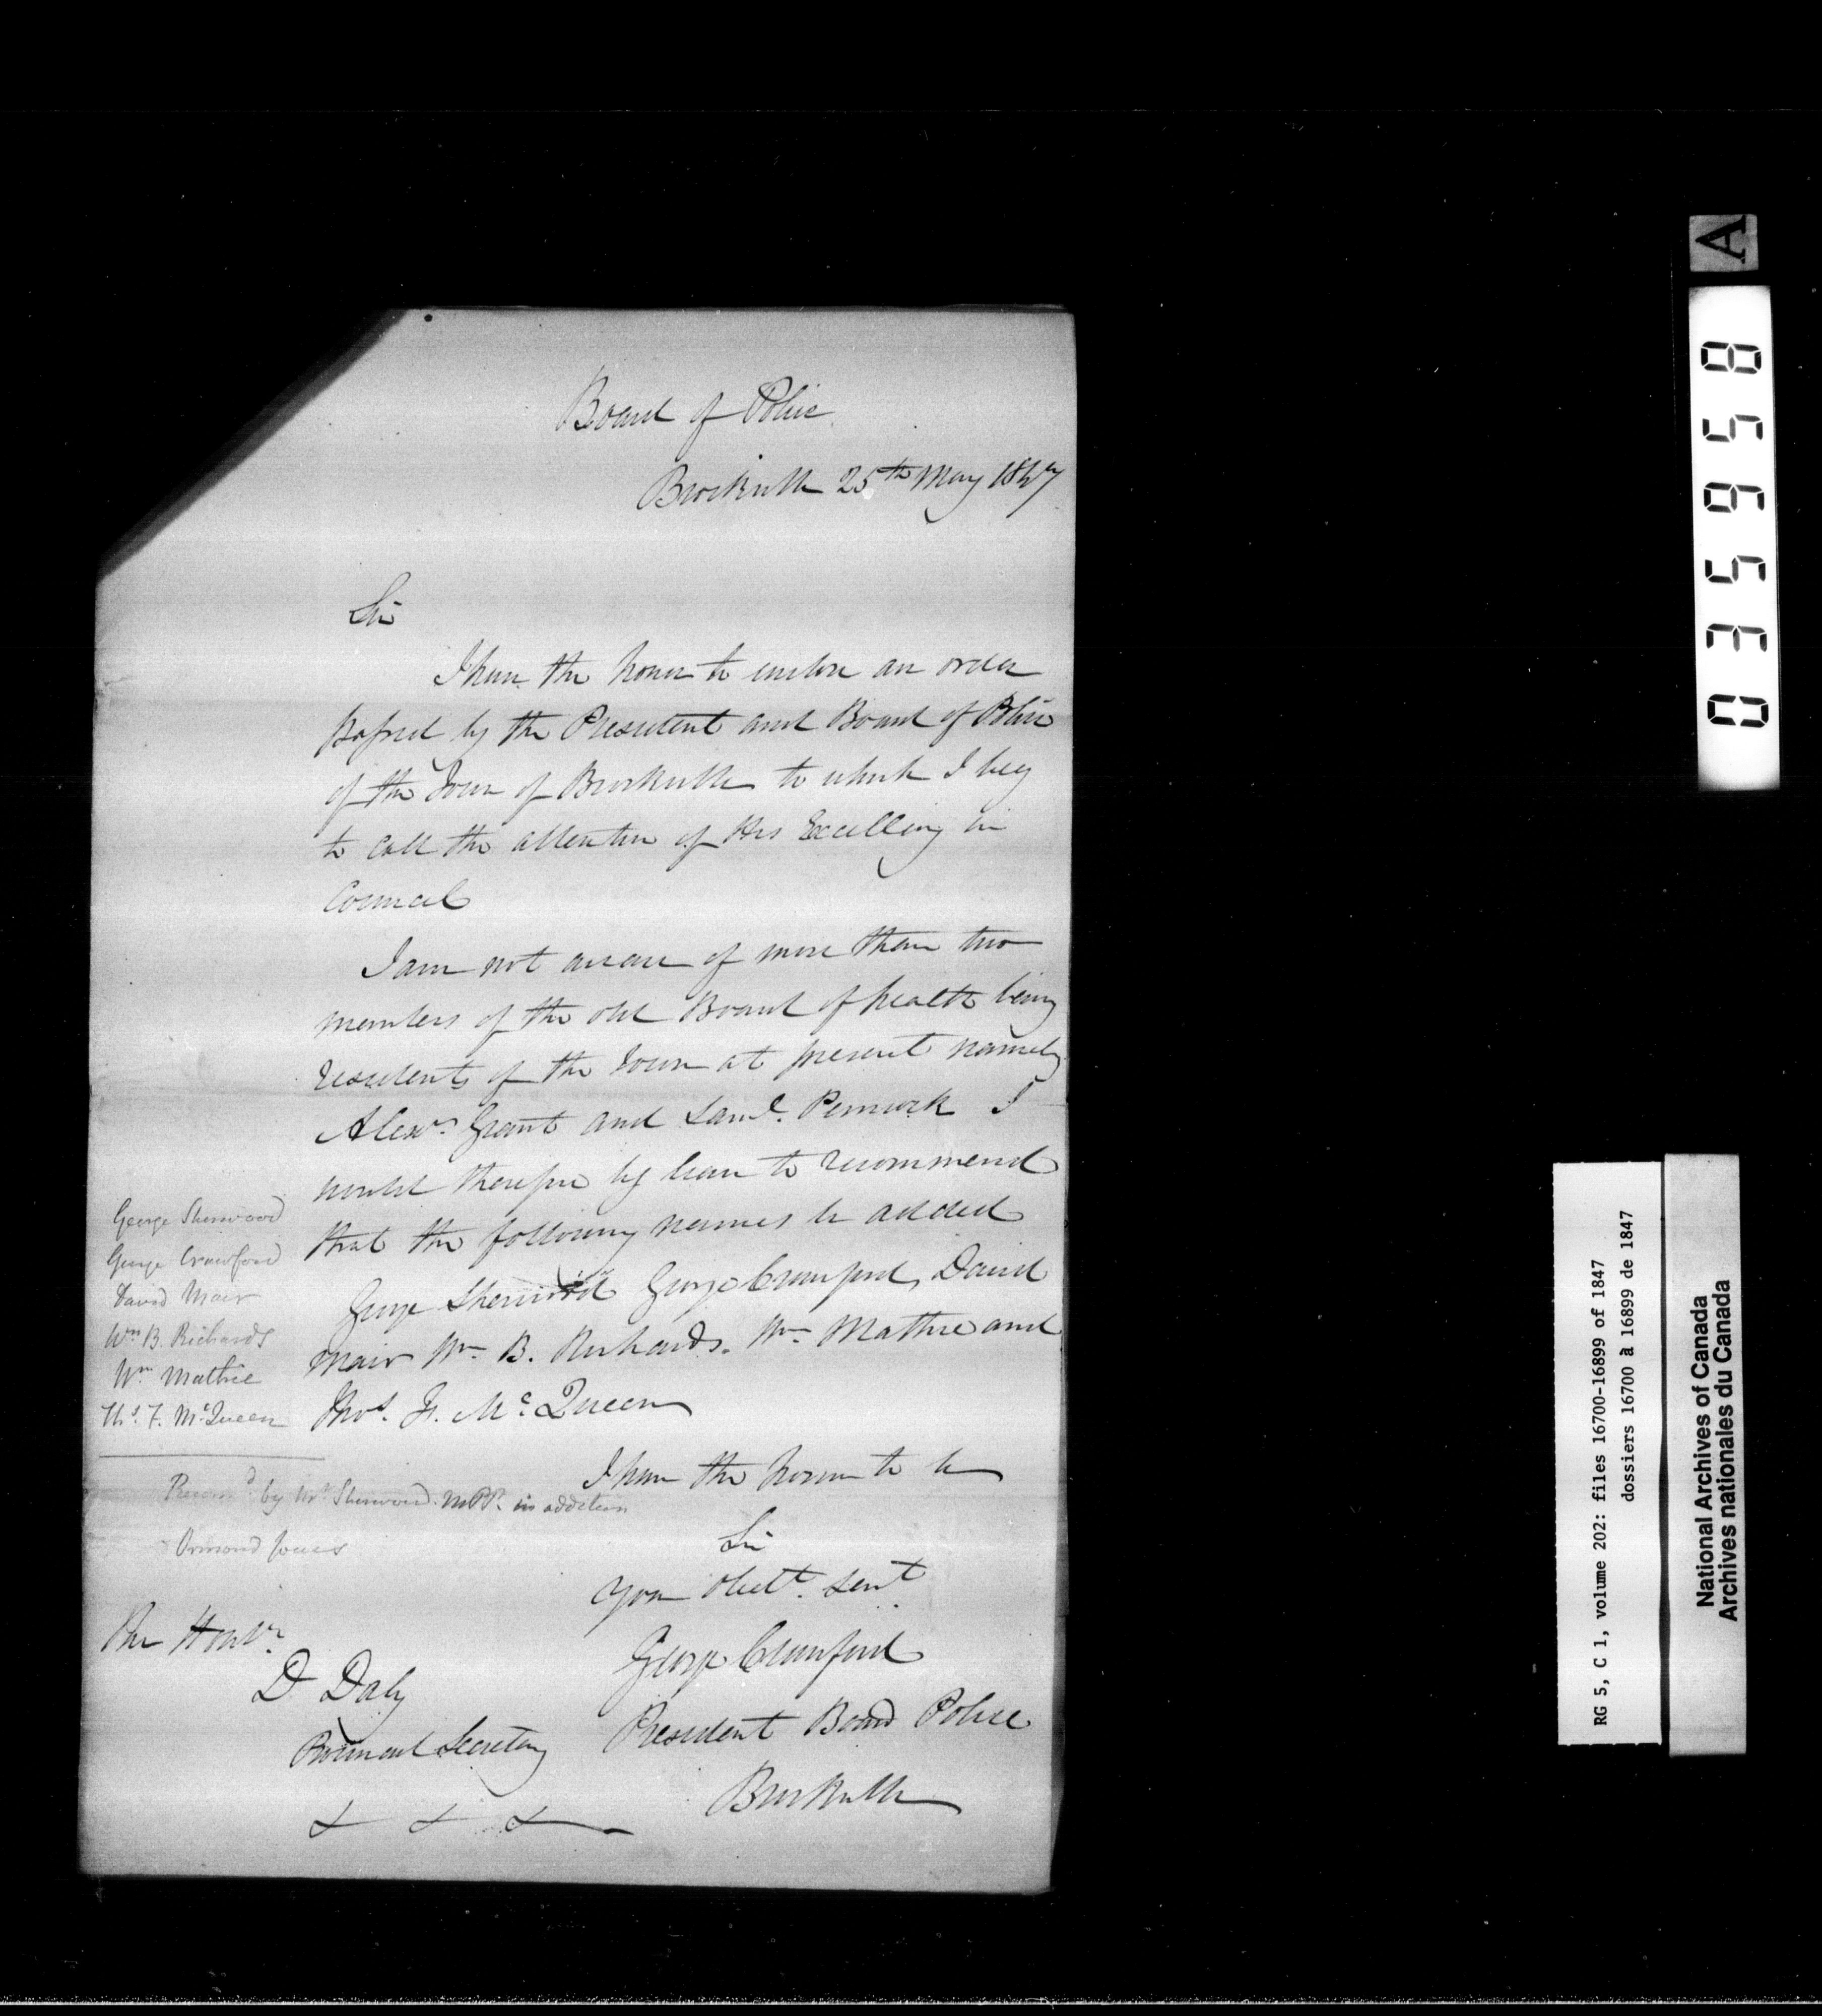 Board of Police
Brockville 25th May 1847
Sir
I have the honor to enclose an order
passed by the President and Board of Police
of the Town of Brockville to which I beg
to call the attention of His Excellency in
Council
I am not aware of more than two
members of the old Board of health being
residents of the Town at present namely
Alexr. Grant and Saml. Pennock I
would therefore beg leave to recommend
that the following names be added
George Sherwood George Crawford, David
Mair Wm. B. Richards. Wm. Mathie and
Thos. F. Mc.Queen
George Sherwood
George Crawford
David Mair
Wm B. Richards
Wm. Mathie
Ths. F. McQueen
Recomd by Mr Sherwood. MPP. in addition
Ormond Jones
I have the honor to be
Sir
Your Obedt. Servt.
George Crawford
President Board Police
Brockville
The Honble.
D Daly
Provincial Secretary
& & &
A
035658
RG 5, C 1, volume 202: files 16700-16899 of 1847
dossiers 16700 à 16899 de 1847
National Archives of Canada
Archives nationales du Canada